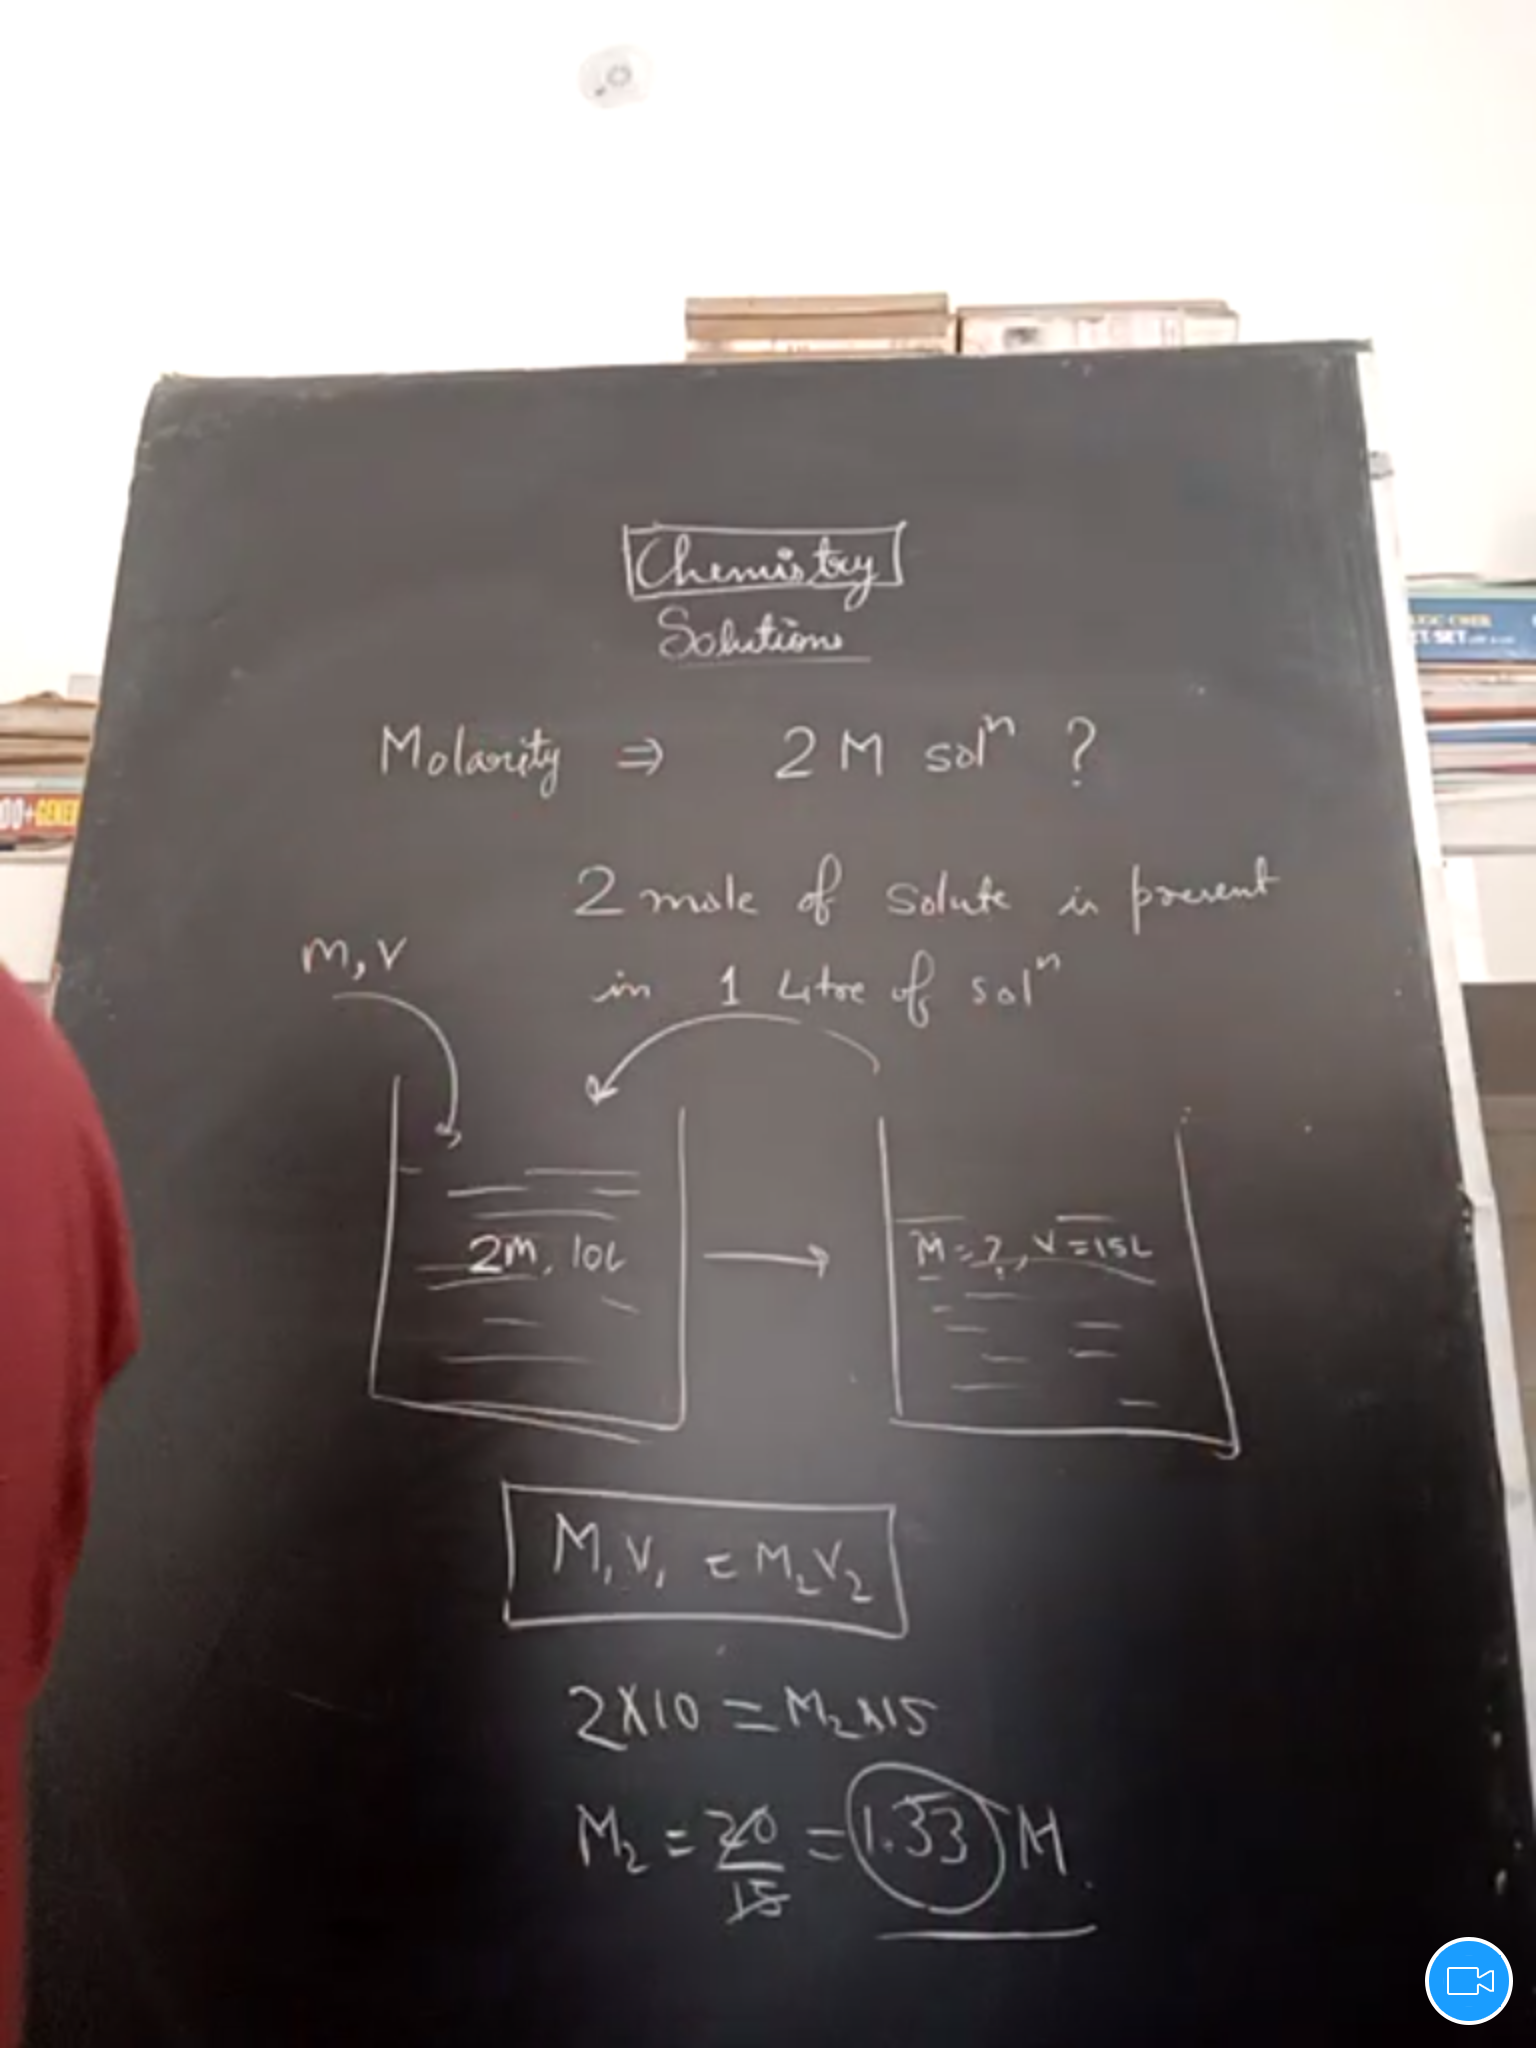 Chemistry
Solutions
Molarity ⇒ 2 M solⁿ ?
2 mole of solute is present
in 1 Litre of solⁿ
M, V
2M, 10L
M = ?, V = 15L
M₁V₁ = M₂V₂
2×10 = M₂×15
M₂ = 20/15 = 1.33 M
00+GENER